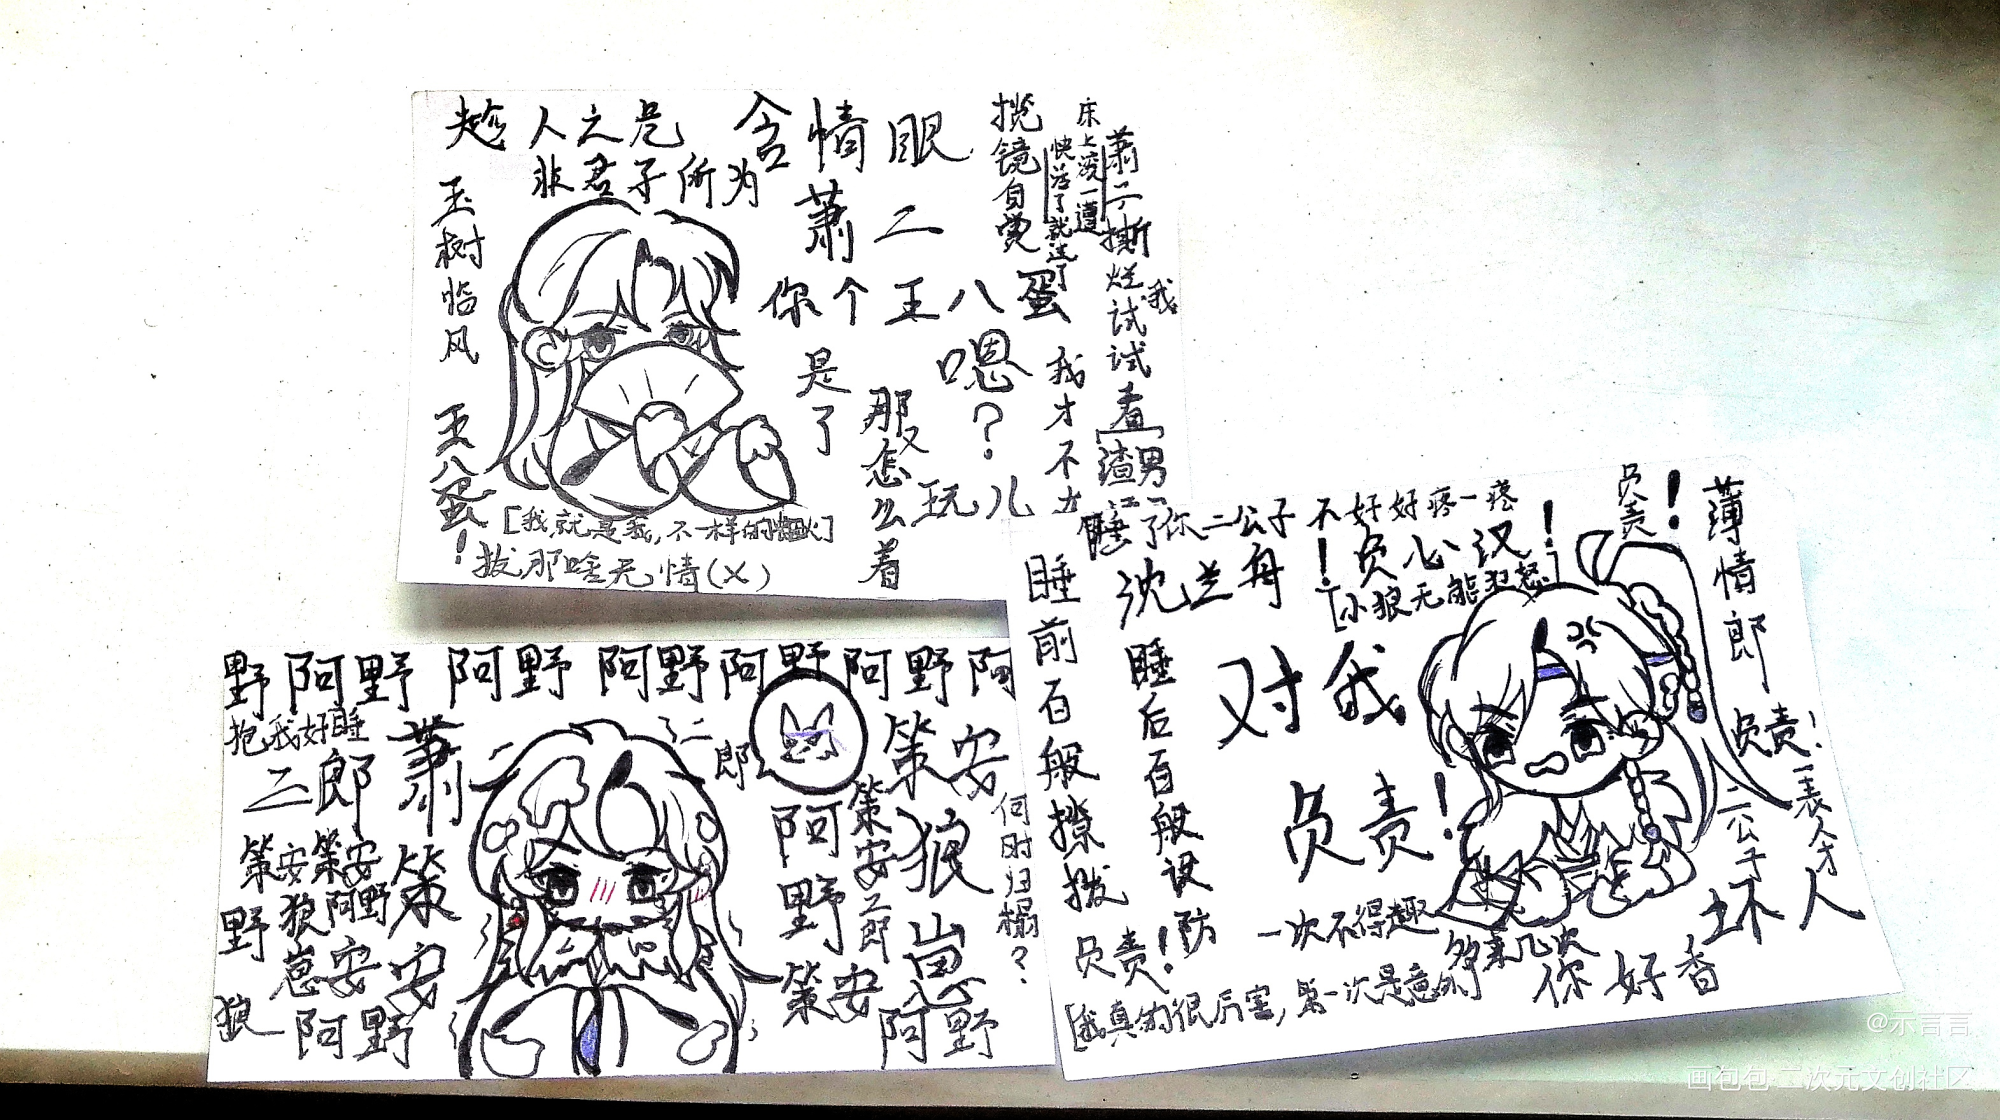 趁人之危
非君子所为
玉树临风
王八蛋!
含情眼
萧二
你个王八蛋
是了
那又怎么着
嗯?
玩儿
揽镜自赏
床上滚一遭
快活了就过了
萧二
撕烂试试
我
我才不
看
渣男
[我就是我,不一样的烟火]
拔那啥无情(x)
睡了你二公子不好好疼一疼
沈兰舟!负心汉!
[小狼无能狂怒]
负责!
薄情郎
睡前百般撩拨
睡后百般设防
对我
负责!
负责!
负责!
一表人才
二公子
坏人
一次不得趣
多来几次
你好香
[我真的很厉害,第一次是意外]
野阿野阿野阿野阿野阿野阿
抱我好睡
二郎
萧
策安
策安策安
野
狼
狼崽
阿野
安
阿野
二郎
策安
阿野
策安
策安
二郎
狼崽
阿野
何时归榻?
@示言言
画包包 二次元文创社区